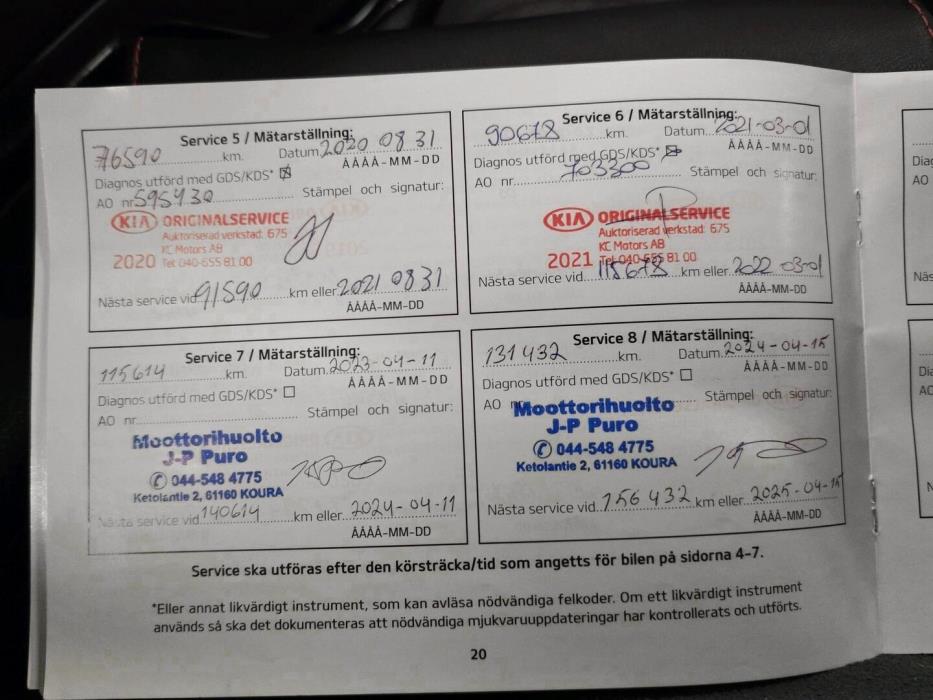 Service 5 / Mätarställning:
76590 km. Datum 2020 08 31
ÅÅÅÅ-MM-DD
Diagnos utförd med GDS/KDS* ☒
AO nr 595430 Stämpel och signatur:
KIA ORIGINALSERVICE
Auktoriserad verkstad: 675
KC Motors AB
2020 Tel 040-655 81 00
Nästa service vid 91590 km eller 2021 08 31
ÅÅÅÅ-MM-DD
Service 6 / Mätarställning:
90678 km. Datum 2021-03-01
ÅÅÅÅ-MM-DD
Diagnos utförd med GDS/KDS* ☒
AO nr. 703300 Stämpel och signatur:
KIA ORIGINALSERVICE
Auktoriserad verkstad: 675
KC Motors AB
2021 Tel 040-655 81 00
Nästa service vid 115678 km eller 2022-03-01
ÅÅÅÅ-MM-DD
Service 7 / Mätarställning:
115614 km. Datum 2023-04-11
ÅÅÅÅ-MM-DD
Diagnos utförd med GDS/KDS* ☐
AO nr. Stämpel och signatur:
Moottorihuolto
J-P Puro
✆ 044-548 4775
Ketolantie 2, 61160 KOURA
Nästa service vid 140614 km eller 2024-04-11
ÅÅÅÅ-MM-DD
Service 8 / Mätarställning:
131432 km. Datum 2024-04-15
ÅÅÅÅ-MM-DD
Diagnos utförd med GDS/KDS* ☐
AO nr. Stämpel och signatur:
Moottorihuolto
J-P Puro
✆ 044-548 4775
Ketolantie 2, 61160 KOURA
Nästa service vid 156432 km eller 2025-04-15
ÅÅÅÅ-MM-DD
Service ska utföras efter den körsträcka/tid som angetts för bilen på sidorna 4-7.
*Eller annat likvärdigt instrument, som kan avläsa nödvändiga felkoder. Om ett likvärdigt instrument
används så ska det dokumenteras att nödvändiga mjukvaruuppdateringar har kontrollerats och utförts.
20